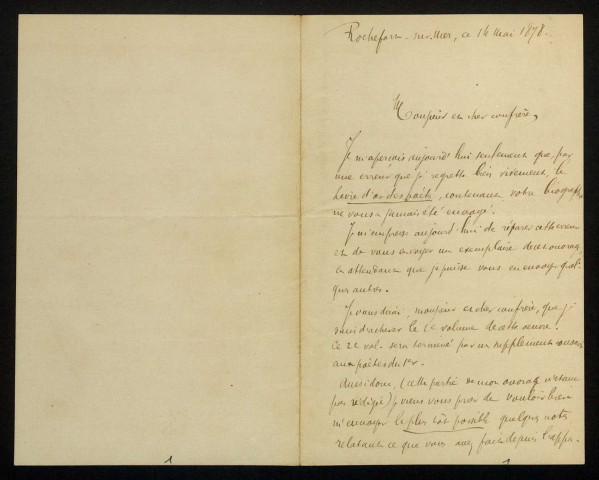 Rochefort-sur-Mer, ce 14 mai 1878.
Monsieur et cher confrère,
Je m'aperçois aujourd'hui seulement que, par
une erreur que je regrette bien vivement, le
Livre d'or des poëtes, contenant votre biographie
ne vous a jamais été envoyé.
Je m'empresse aujourd'hui de réparer cette erreur
et de vous envoyer un exemplaire de cet ouvrage
en attendant que je puisse vous en envoyer quel-
ques autres.
Je vous dirai, monsieur et cher confrère, que je
suis d'achever le 2e volume de cette œuvre.
Ce 2e vol. sera terminé par un supplément consacré
aux poëtes du 1er.
Aussi donc, (cette partie de mon ouvrage n'étant
pas rédigée) je viens vous prier de vouloir bien
m'envoyer le plus tôt possible quelques notes
relatant ce que vous avez fait depuis l'appa-
1
1